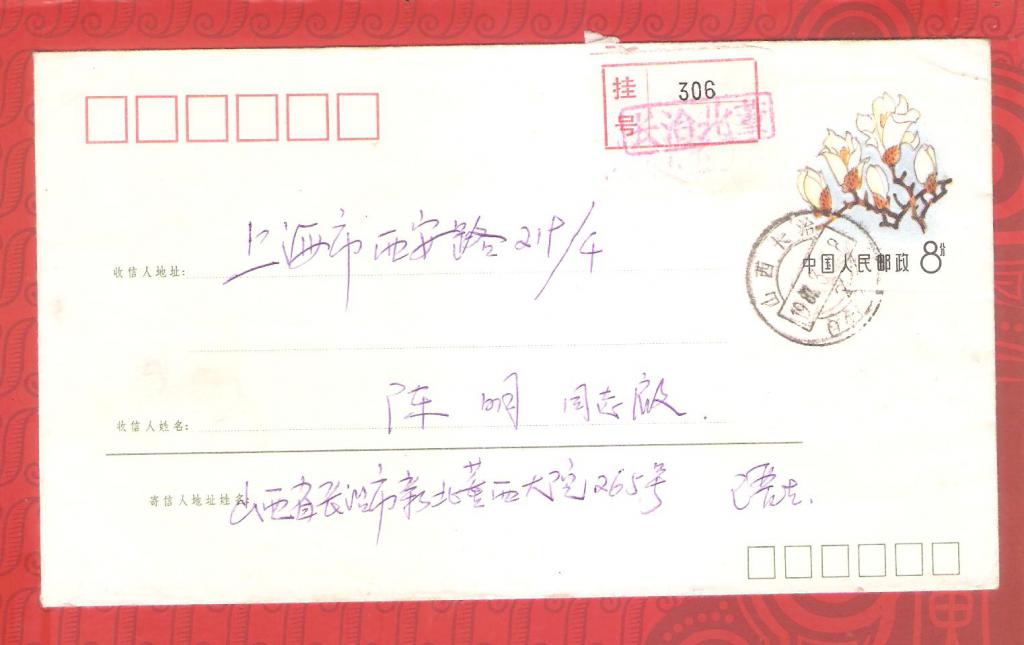 挂号 306
长治北董
中国人民邮政 8分
山西长治
收信人地址: 上海市西安路21#/4
收信人姓名: 陈明 同志啟.
寄信人地址姓名: 山西省长治市新北董西大院265号